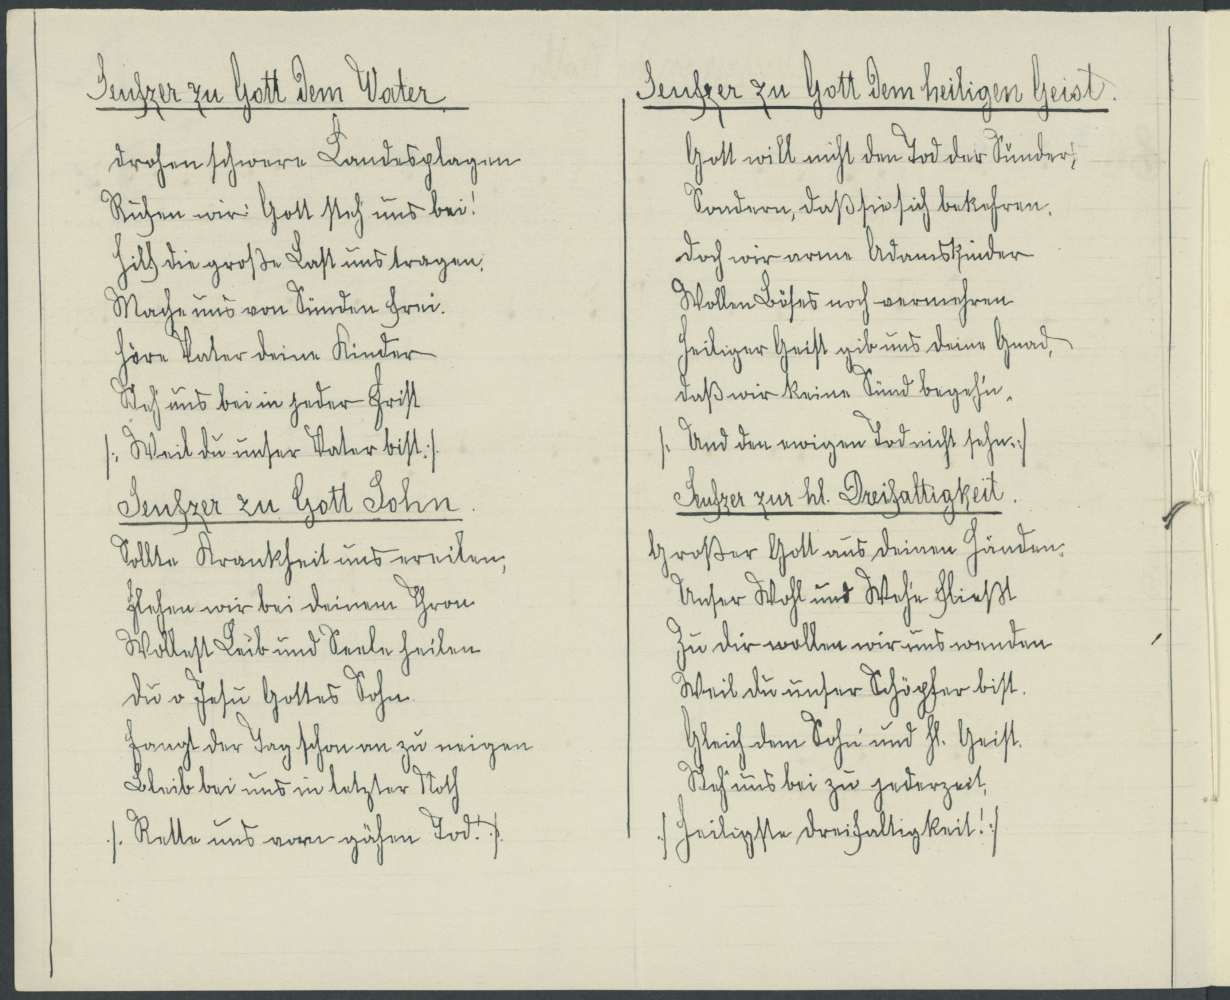 Seufzer zu Gott dem Vater
drohen schwere Landesplagen
Rufen wir: Gott steh' uns bei!
Hilf die große Last uns tragen,
Mache uns von Sünden frei.
Höre Vater deine Kinder
Steh' uns bei in jeder Frist
/: Weil du unser Vater bist. :/
Seufzer zu Gott Sohn.
Sollte Krankheit uns ereilen,
Flehen wir bei deinem Thron
Wollest Leib und Seele heilen
du o Jesu Gottes Sohn.
Fangt der Tag schon an zu neigen
Bleib bei uns in letzter Noth
/: Rette uns vorn gähen Tod! :/
Seufzer zu Gott dem heiligen Geist.
Gott will nicht den Tod der Sünder,
Sondern, daß sie sich bekehren.
doch wir arme Adamskinder
Wollen Böses noch vermehren
Heiliger Geist gib uns deine Gnad,
daß wir keine Sünd begeh'n.
/: Und den ewigen Tod nicht sehn. :/
Seufzer zur hl. Dreifaltigkeit.
Großer Gott aus deinen Händen,
Unser Wohl und Wehe fließt
Zu dir wollen wir uns wenden
Weil du unser Schöpfer bist.
Gleich dem Sohn' und hl. Geist.
Steh' uns bei zu jederzeit,
:/ Heiligste dreifaltigkeit! :/